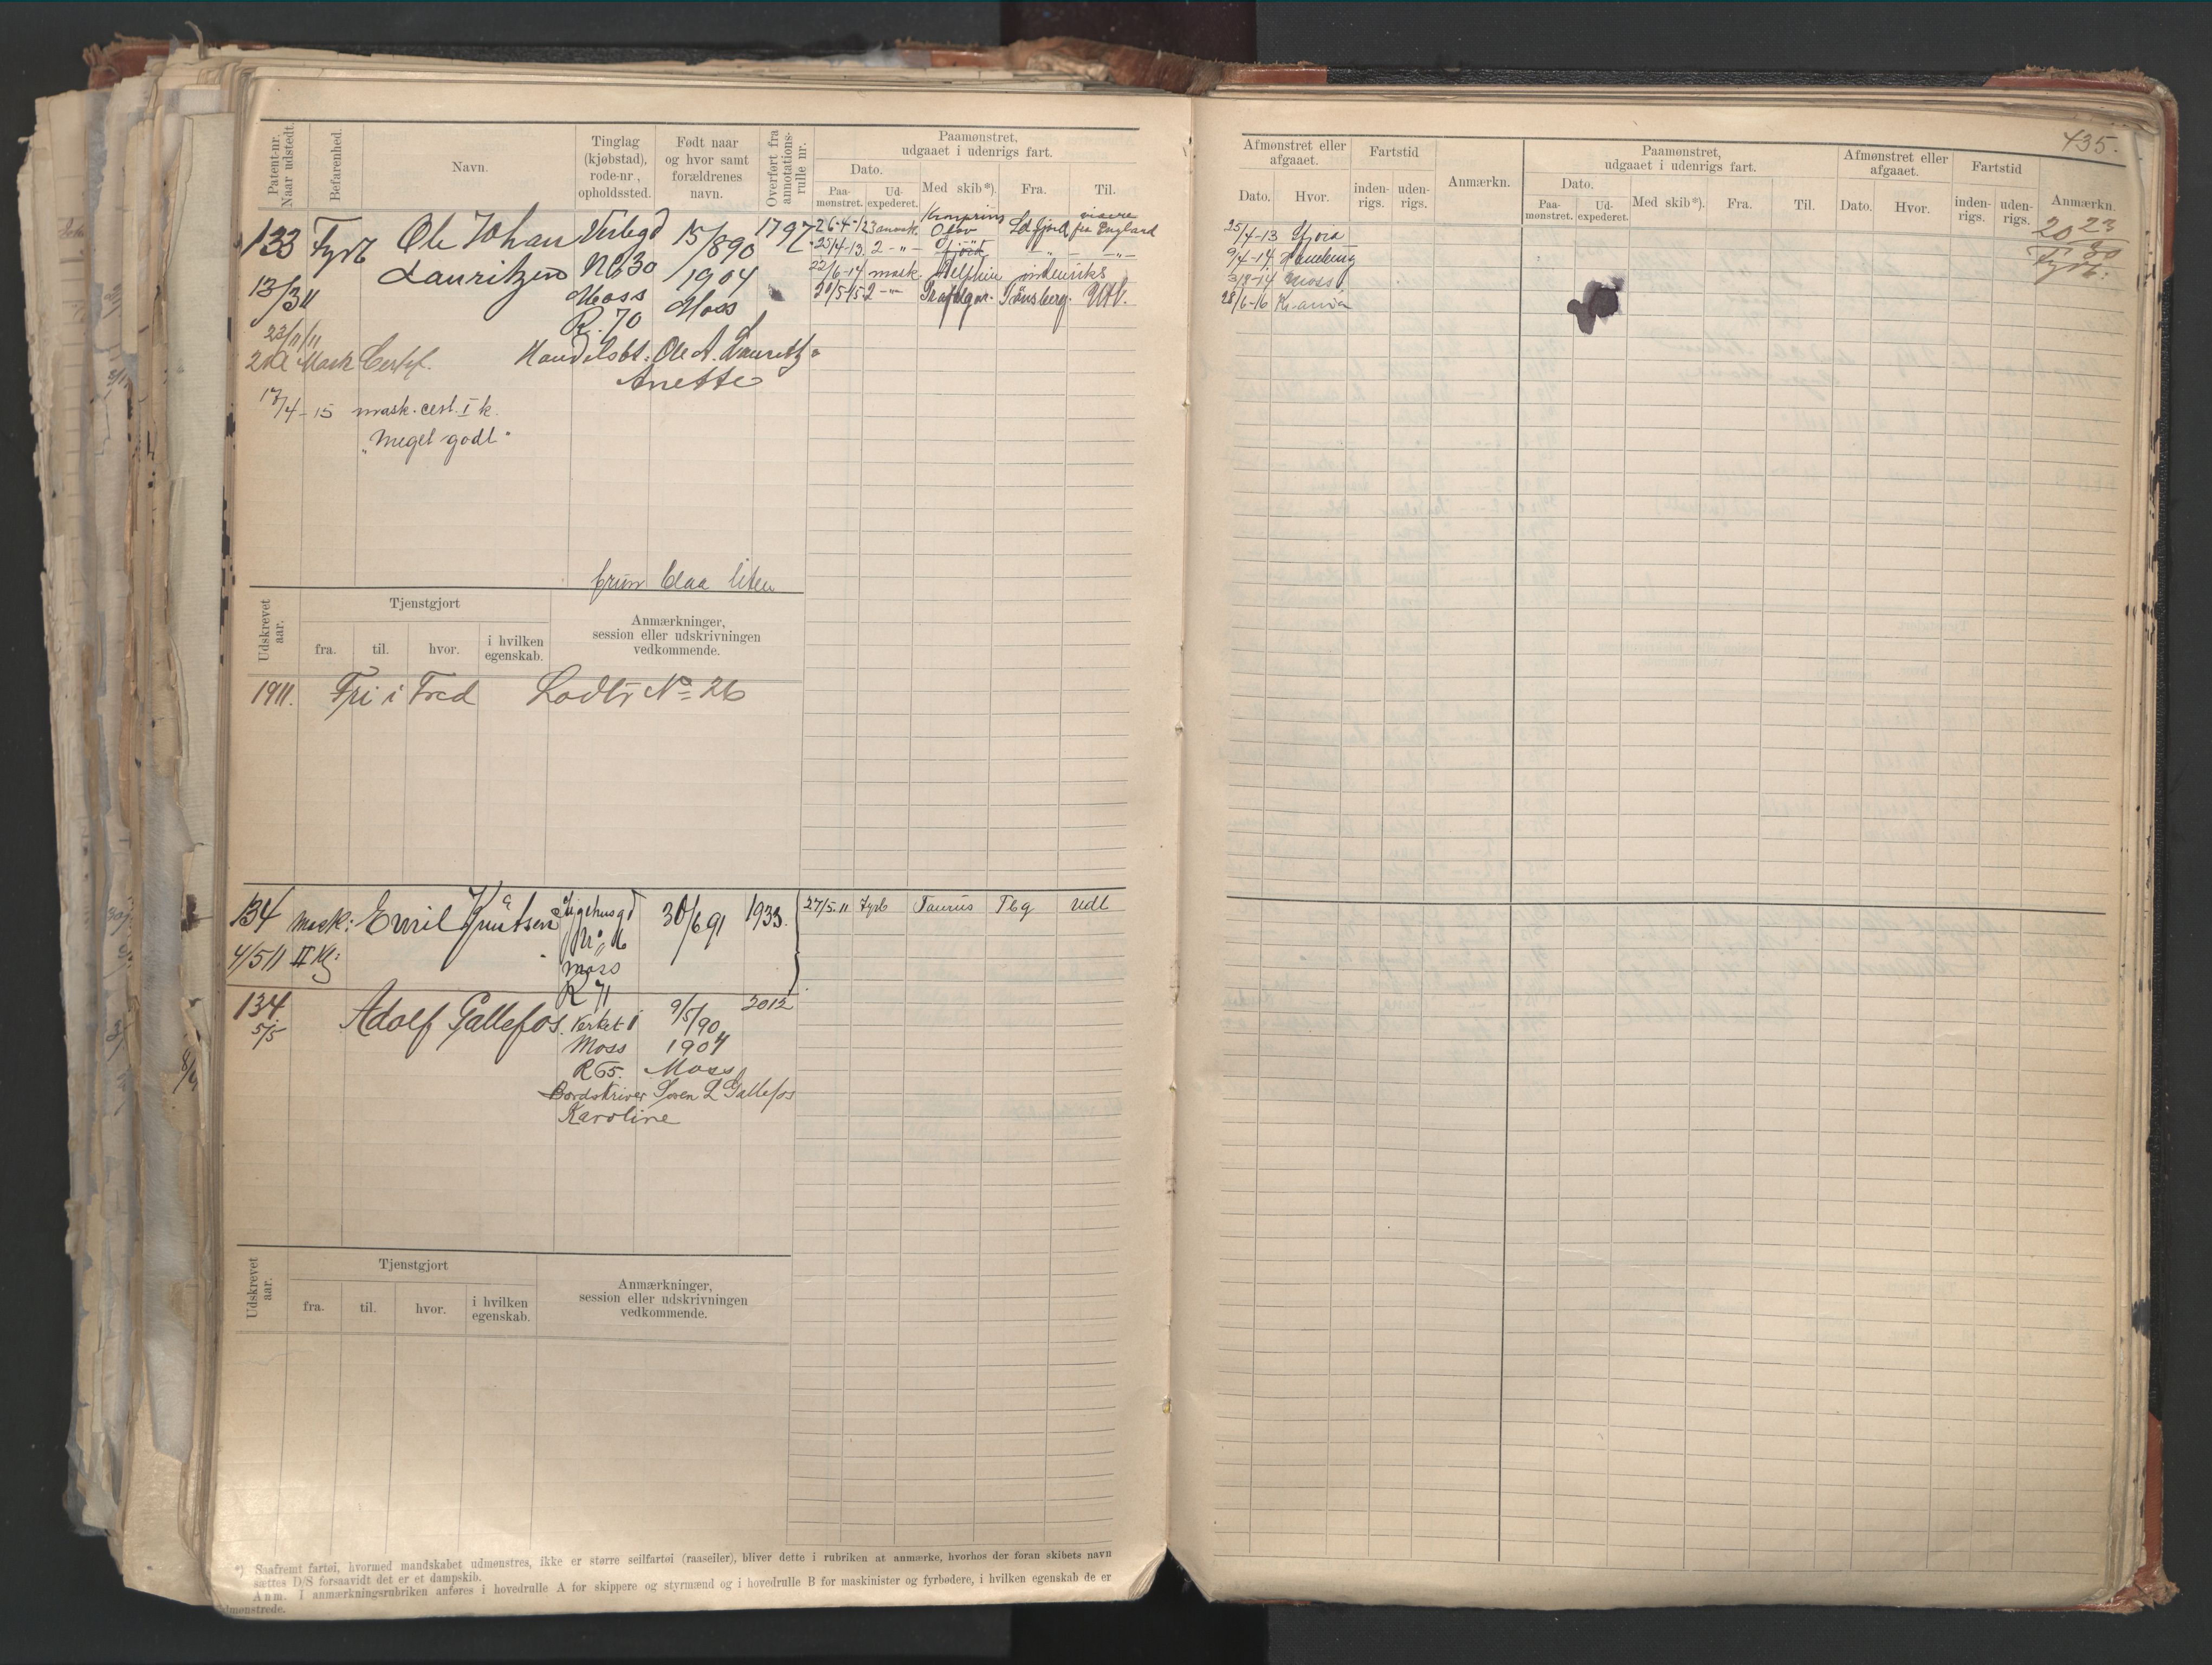 435.
Patent-nr. Naar udstedt.
Befarenhed.
Navn.
Tinglag (kjøbstad), rode-nr, opholdssted.
Født naar og hvor samt forældrenes navn.
Overført fra annotations-rulle nr.
Paamønstret, udgaaet i udenrigs fart.
Dato.
Paa-mønstret.
Ud-expederet.
Med skib*).
Fra.
Til.
Afmønstret eller afgaaet.
Dato.
Hvor.
Fartstid
inden-rigs.
uden-rigs.
Anmærkn.
Paamønstret, udgaaet i udenrigs fart.
Dato.
Paa-mønstret.
Ud-expederet.
Med skib*).
Fra.
Til.
Afmønstret eller afgaaet.
Dato.
Hvor.
Fartstid
inden-rigs.
uden-rigs.
Anmærkn.
133 Fyrb Ole Johan Verlegd 15/890 1797
Lauritzen No 30 1904
13/3 11 Moss Moss
R. 70
23/11/11
2den Mask Certif. Handelsbt. Ole A. Lauritz
Anette
17/4-15 mask. cert. I k.
"Meget godt"
Kronprins
Olav fra England
25/4-13 2 - " -
22/6-14 mask. Delphin indenriks
20/5-15 2 - " - Tønsberg. Utl.
25/4-13
9/4-14 Hamburg
3/8-14 Moss
28/6-16 Kr.ania
20 23
30
Fyrb:
brun blaa liten
Udskrevet aar.
Tjenstgjort
fra.
til.
hvor.
i hvilken egenskab.
Anmærkninger, session eller udskrivningen vedkommende.
1911. Fri i Fred Lodtr No 26
134 Mask: Emil Knutsen 30/6 91 1933. 27/5.11 Fyrb Taurus Tbg Udl
4/5 11 II Kl: Moss
R 71
134 Adolf Gallefos. Verket 9/5/90 2012
5/5 Moss 1904
R 65. Moss
Bordskriver Soren L Gallefos
Karoline
Udskrevet aar.
Tjenstgjort
fra.
til.
hvor.
i hvilken egenskab.
Anmærkninger, session eller udskrivningen vedkommende.
*) Saafremt fartøi, hvormed mandskabet udmønstres, ikke er større seilfartøi (raaseiler), bliver dette i rubriken at anmærke, hvorhos der foran skibets navn
sættes D/S forsaavidt det er et dampskib.
Anm. I anmærkningsrubriken anføres i hovedrulle A for skippere og styrmænd og i hovedrulle B for maskinister og fyrbødere, i hvilken egenskab de er